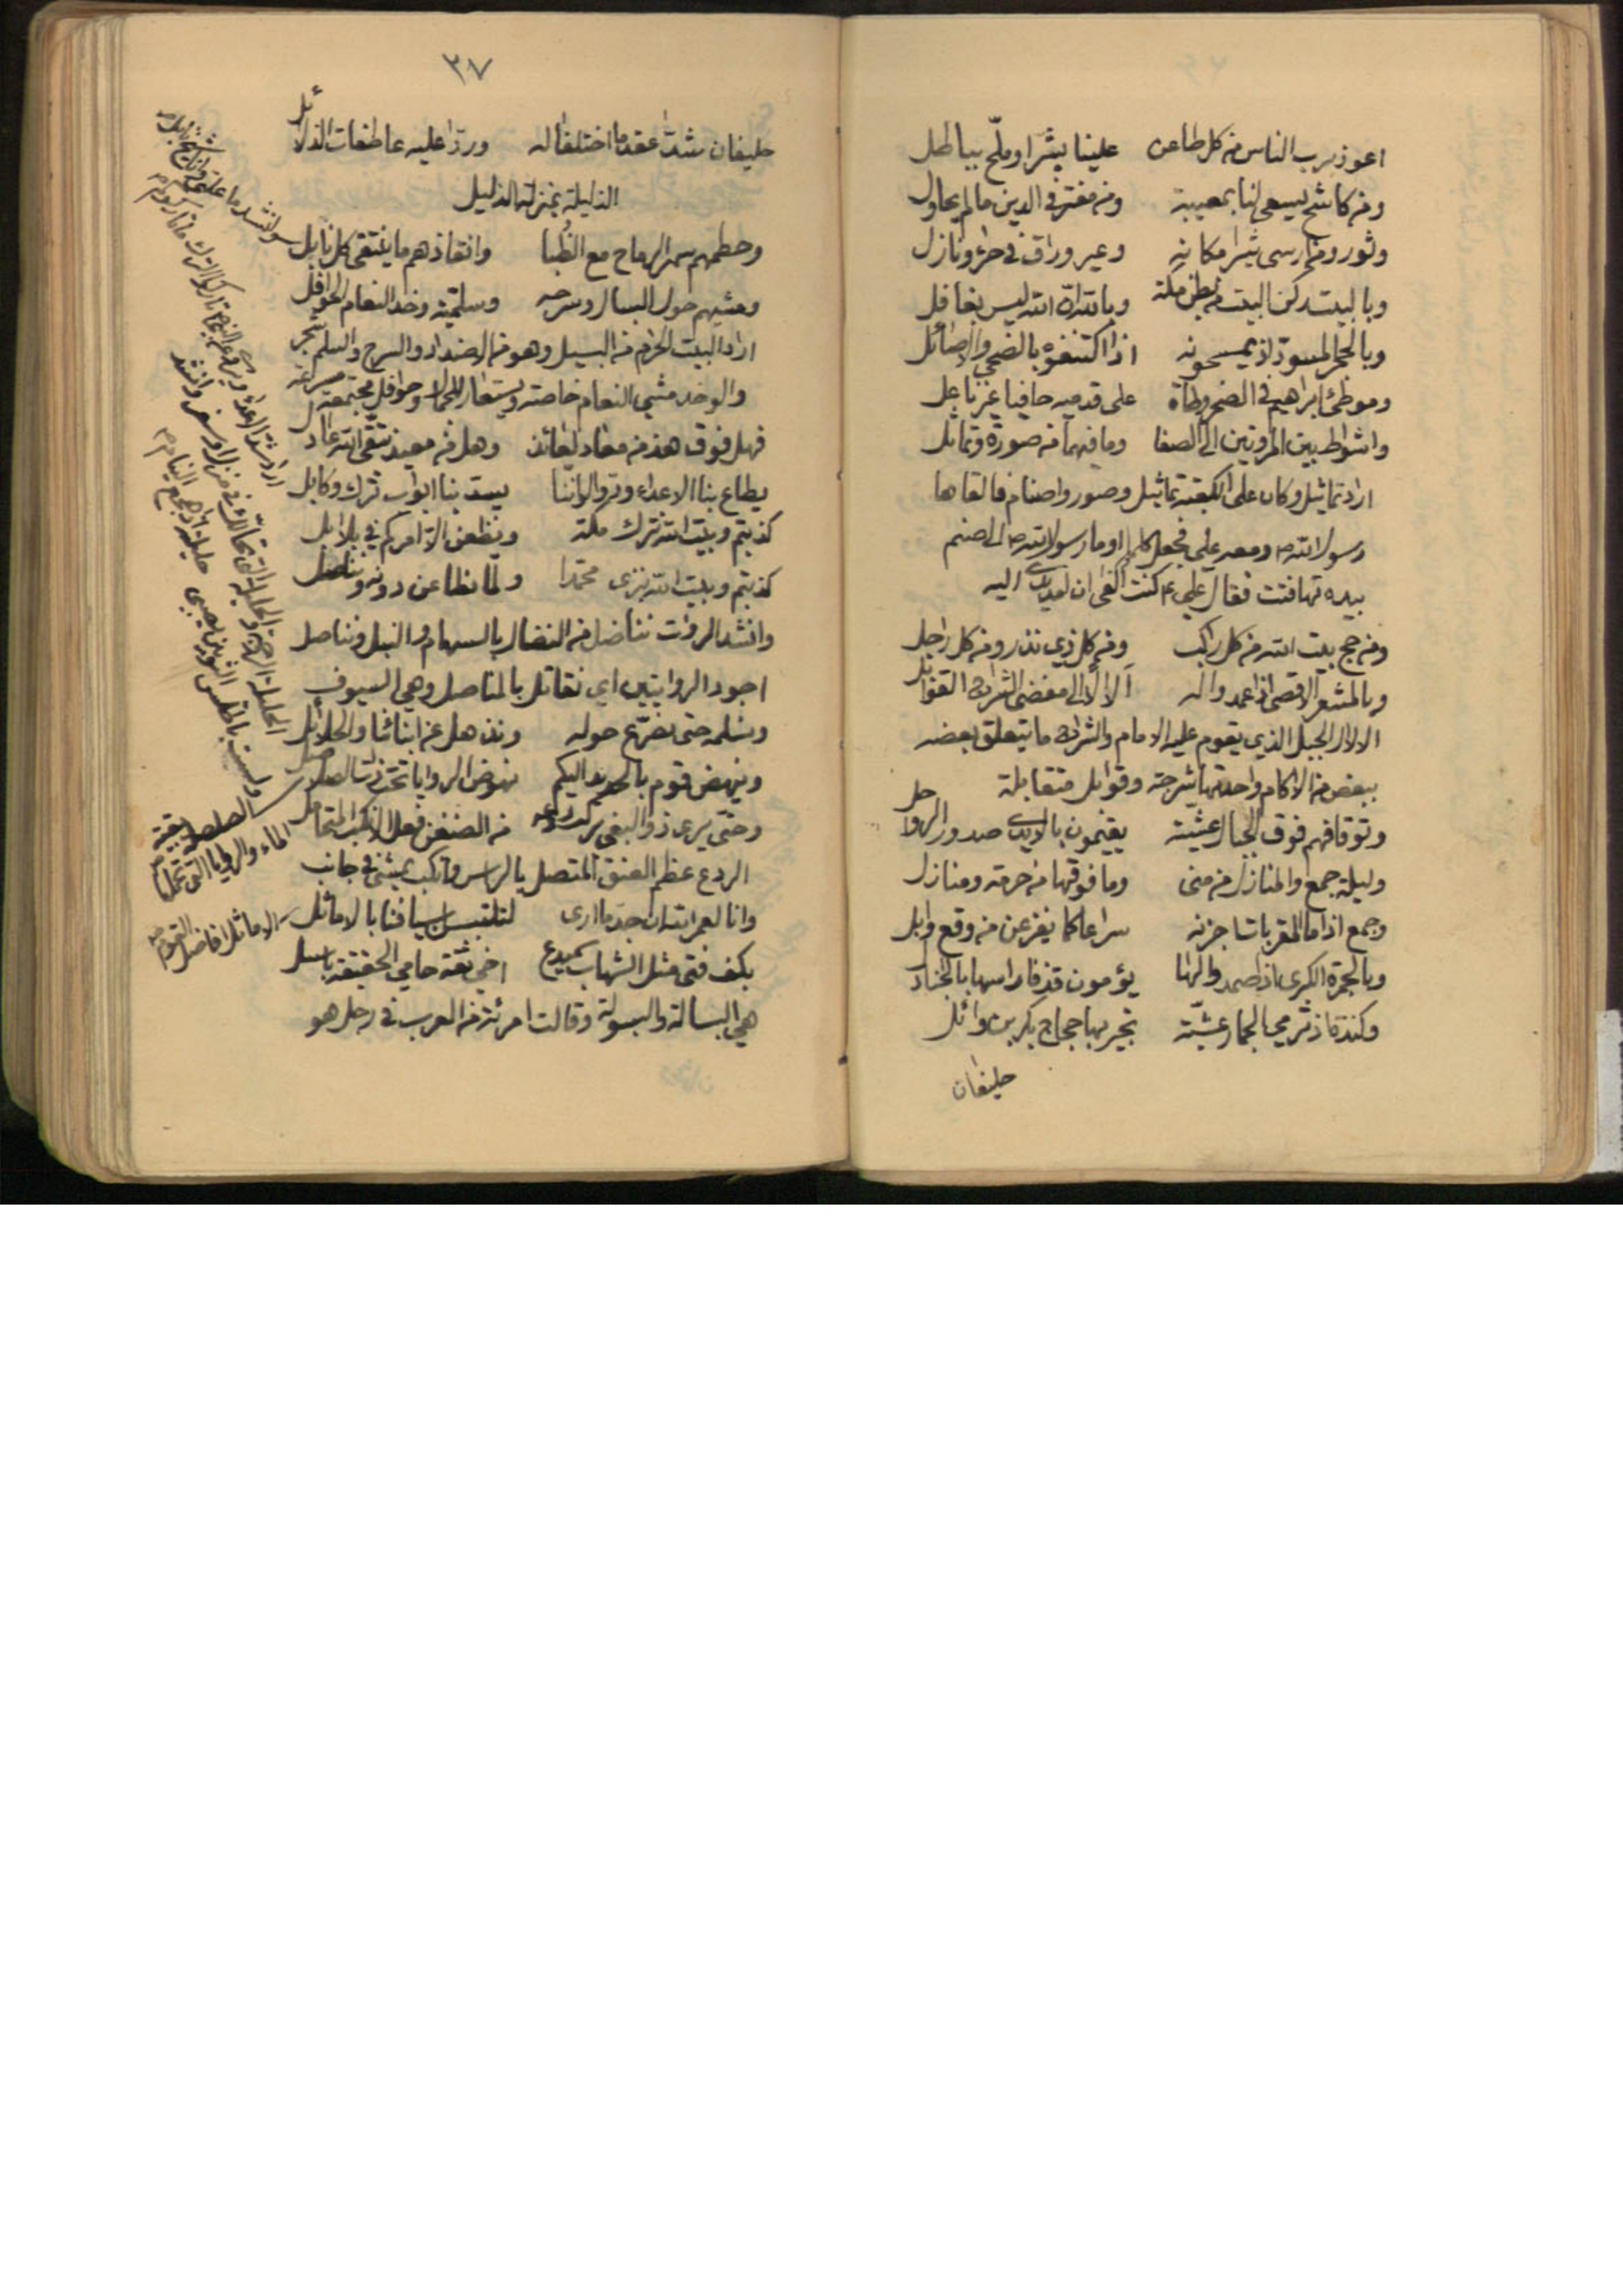 اعوذ برب الناس من كل طاعن علينا بشر او ملح بباطل
ومن كاشح يسعى لنا بمعيبة ومن مفتر في الدين ما لم يحاول
وثور ومن ارسى ثبيرا مكانه وعير وراق في حراء ونازل
وبالبيت ركن البيت من بطن مكة وبالله ان الله ليس بغافل
وبالحجر المسود اذ يمسحونه اذا اكتنفوه بالضحى والاصائل
وموطئ ابراهيم في الصخر وطأة على قدميه حافيا غير ناعل
واشواط بين المروتين الى الصفا وما فيهما من صورة وتماثل
اراد تماثيل وكان على الكعبة تماثيل وصور واصنام فالقاها
رسول الله ص ومعه علي فجعل كلما اومأ رسول الله ص الى صنم
بيده تهافتت فقال علي ع كنت الفى ان ليديه اليه
ومن حج بيت الله من كل راكب ومن كل ذي نذر ومن كل راجل
وبالمشعر الاقصى اذا عمدوا له ألالا الى مفضى الشراج القوابل
الالال الجبل الذي يقوم عليه الامام والشراج ما يتعلق بعضه
ببعض من الاكام واحدتها شرجة وقوابل متقابلة
وتوقافهم فوق الجبال عشية يقيمون بالايدي صدور الرواحل
وليلة جمع والمنازل من منى وما فوقها من حرمة ومنازل
وجمع اذا ما المقربات اجزنه سراعا كما يفزعن من وقع وابل
وبالجمرة الكبرى اذا صمدوا لها يؤمون قذفا راسها بالجنادل
وكندة اذ ترمي الجمار عشية تجير بها حجاج بكر بن وائل
حليفان
٣٧
حليفان شدا عقد ما اختلفا له وردا عليه عاطفات الذلائل
الذليلة بمنزلة الذليل
وحطمهم سمر الرماح مع الظبا وانقاذهم ما ينتقى كل نابل
ومشيهم حول البسال وسرحه وسلميه وخد النعام الجوافل
اراد البيت الحرام من البسيل وهو من الاضداد والسرح والسلم شجر
والوخد مشي النعام خاصة ويستعار للجمال وجوافل مجتمعة مسرعة
فهل فوق هذا من معاذ لعائذ وهل من معيذ يتقي الله عادل
يطاع بنا الاعداء وودوا لو اننا يسد بنا ابواب ترك وكابل
كذبتم وبيت الله نترك مكة ونظعن الا امركم في بلابل
كذبتم وبيت الله نبزى محمدا ولما نطاعن دونه ونناضل
وانشد الروات نناضل من النضال بالسهام والنبل ونناصل
اجود الروايتين اي نقاتل بالمناصل وهي السيوف
ونسلمه حتى نصرع حوله ونذهل عن ابنائنا والحلائل
وينهض قوم بالحديد اليكم نهوض الروايا تحت ذات الصلاصل
وحتى يرى ذو البغي يركب ردعه من الضغن فعل الانكب المتحامل
الردع عظم العنق المتصل بالراس وانكب يمشي في جانب
وانا لعمر الله ان جد ما ارى لتلتبسن اسيافنا بالاماثل
بكف فتى مثل الشهاب سميدع اخي ثقة حامي الحقيقة باسل
هي البسالة والبسولة وقالت امرئة من العرب في رجل هو
الاماثل افاضل القوم